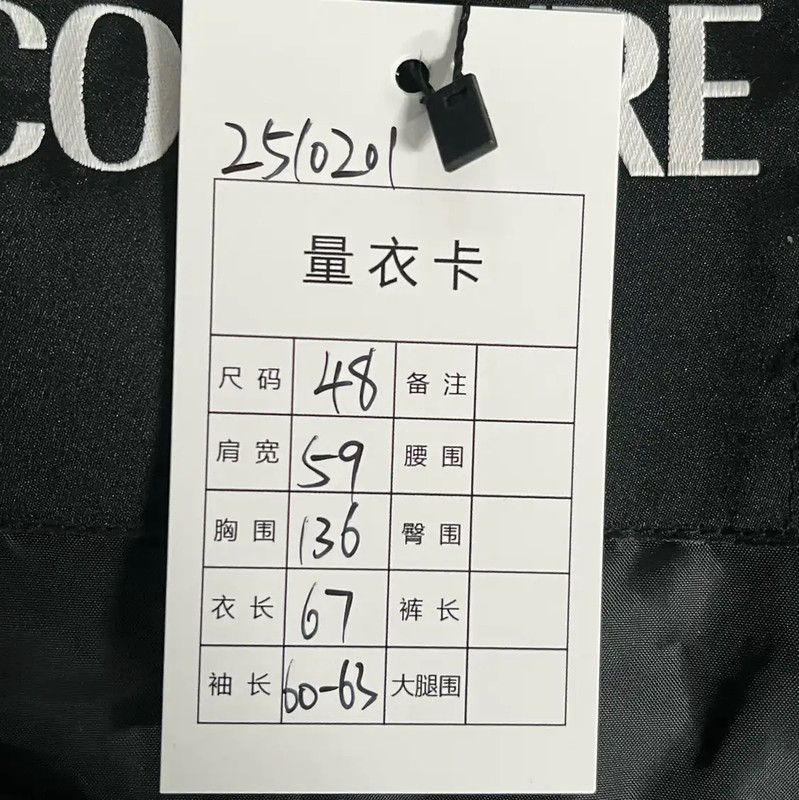 CO RE
2510201
量衣卡
尺码 48 备注
肩宽 59 腰围
胸围 136 臀围
衣长 67 裤长
袖长 60-63 大腿围